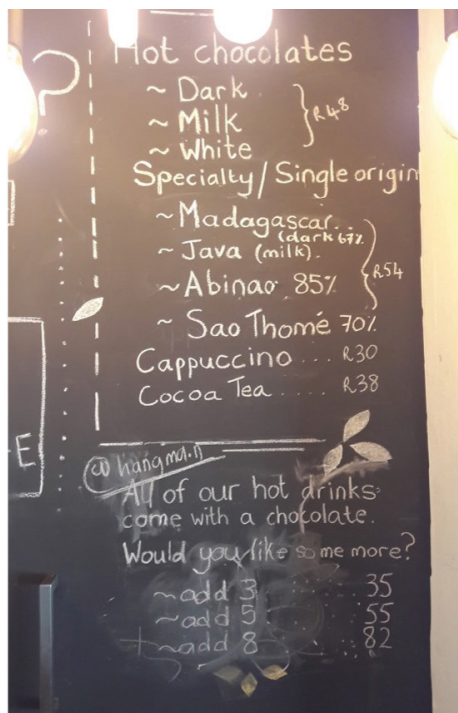 ?
Hot chocolates
~ Dark
~ Milk
~ White
} R48
Specialty/Single origin
~ Madagascar..
(dark 67%
~ Java (milk).
~ Abinao 85%
} R54
~ Sao Thomé 70%
Cappuccino .... R30
Cocoa Tea ..... R38
E
All of our hot drinks
come with a chocolate.
Would you like some more?
~ add 3 ... 35
~ add 5 ... 55
~ add 8 ... 82